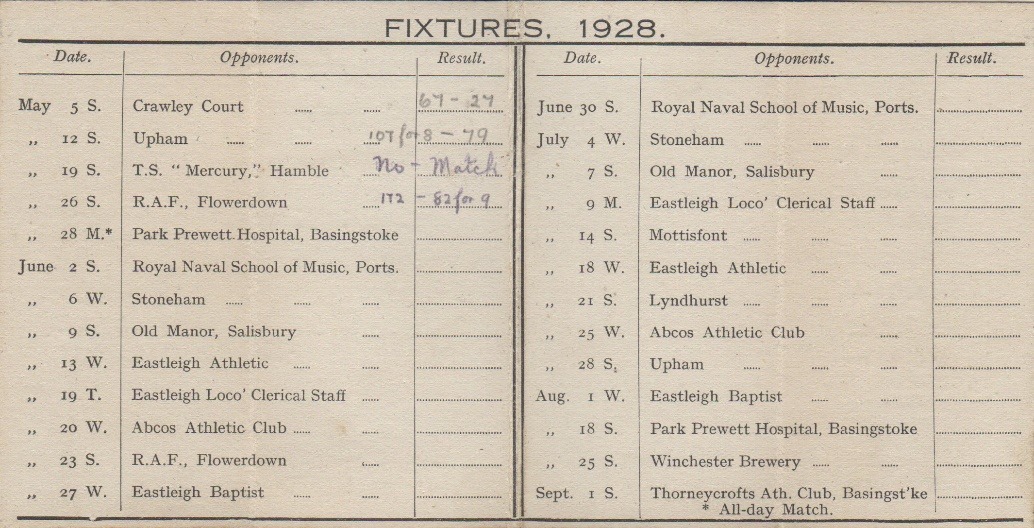 FIXTURES, 1928.
Date. Opponents. Result.
May 5 S. Crawley Court ..... ..... 67 - 27
„ 12 S. Upham ..... ..... 107 for 8 - 79
„ 19 S. T.S. “Mercury,” Hamble No - Match
„ 26 S. R.A.F., Flowerdown ..... 172 - 82 for 9
„ 28 M.* Park Prewett Hospital, Basingstoke
June 2 S. Royal Naval School of Music, Ports.
„ 6 W. Stoneham ..... ..... .....
„ 9 S. Old Manor, Salisbury .....
„ 13 W. Eastleigh Athletic ..... .....
„ 19 T. Eastleigh Loco' Clerical Staff .....
„ 20 W. Abcos Athletic Club ..... .....
„ 23 S. R.A.F., Flowerdown .....
„ 27 W. Eastleigh Baptist ..... .....
Date. Opponents. Result.
June 30 S. Royal Naval School of Music, Ports.
July 4 W. Stoneham ..... ..... .....
„ 7 S. Old Manor, Salisbury .....
„ 9 M. Eastleigh Loco' Clerical Staff .....
„ 14 S. Mottisfont ..... ..... .....
„ 18 W. Eastleigh Athletic ..... .....
„ 21 S. Lyndhurst ..... ..... .....
„ 25 W. Abcos Athletic Club .....
„ 28 S. Upham ..... ..... .....
Aug. 1 W. Eastleigh Baptist ..... .....
„ 18 S. Park Prewett Hospital, Basingstoke
„ 25 S. Winchester Brewery ..... .....
Sept. 1 S. Thorneycrofts Ath. Club, Basingst'ke
* All-day Match.